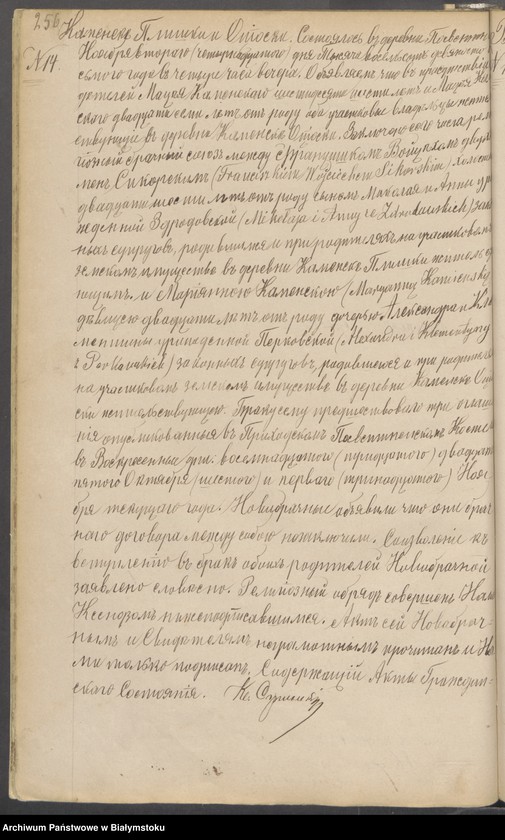 256
N 14
Каменскъ Плишки и Оціоски. Состоялось въ деревни
Ноября втораго (четырнадцатаго) дня Тысяча восемьсотъ девяносто
седьмого года въ четыре часа вечера. Объявляемъ что въ присутствіи
дѣтелей Каменскаго шестидесяти лѣтъ и
скаго двадцати семи лѣтъ отъ роду оба участковые владѣльцы
ствующіе въ деревни Каменско Оціоски. Заключенъ сего числа рели
гіозный брачный союзъ между Францишкомъ Войцѣхомъ двухъ
менъ Сикорскимъ (Franciszkiem Wojciechem Sikorskim) холостымъ
двадцати шести лѣтъ отъ роду сыномъ Миколая и Анны уро
жденной Здродовской (Mikołaja i Anny ze Zdrodowskich) закон
ныхъ супруговъ, родившимся и при родителяхъ на участковомъ
земскомъ имуществѣ въ деревни Каменскъ Плишки жительст
ющимъ. и Маріянною Каменскою (Maryanną Kamieńską)
дѣвицею двадцати лѣтъ отъ роду дочерью Александра и Кле
ментины урожденной Перковской (Alexandra i Klementyny
z Perkowskich) законныхъ супруговъ, родившеюся и при родителяхъ
на участковомъ земскомъ имуществѣ въ деревни Каменско Оціо
ски жительствующею. Браку сему предшествовало три оглаше
нія опубликованныя въ Приходскомъ Костелѣ
въ Воскресенные дни: восемнадцатого (тридцатого) двадцать
пятого Октября (шестого) и перваго (тринадцатого) Ноя-
бря текущаго года. Новобрачные объявили что они брач
наго договора между собою не заключили. Соизволеніе къ
вступленію въ бракъ обоихъ родителей Новобрачной
заявлено словесно. Религіозный обрядъ совершенъ
Ксендзомъ нижеподписавшимся. Актъ сей Новобрач-
нымъ и Свидѣтелямъ неграмотнымъ прочитанъ и На
ми только подписанъ. Содержащій Акты Граждан-
скаго Состоянія. Кс.
Archiwum Państwowe w Białymstoku